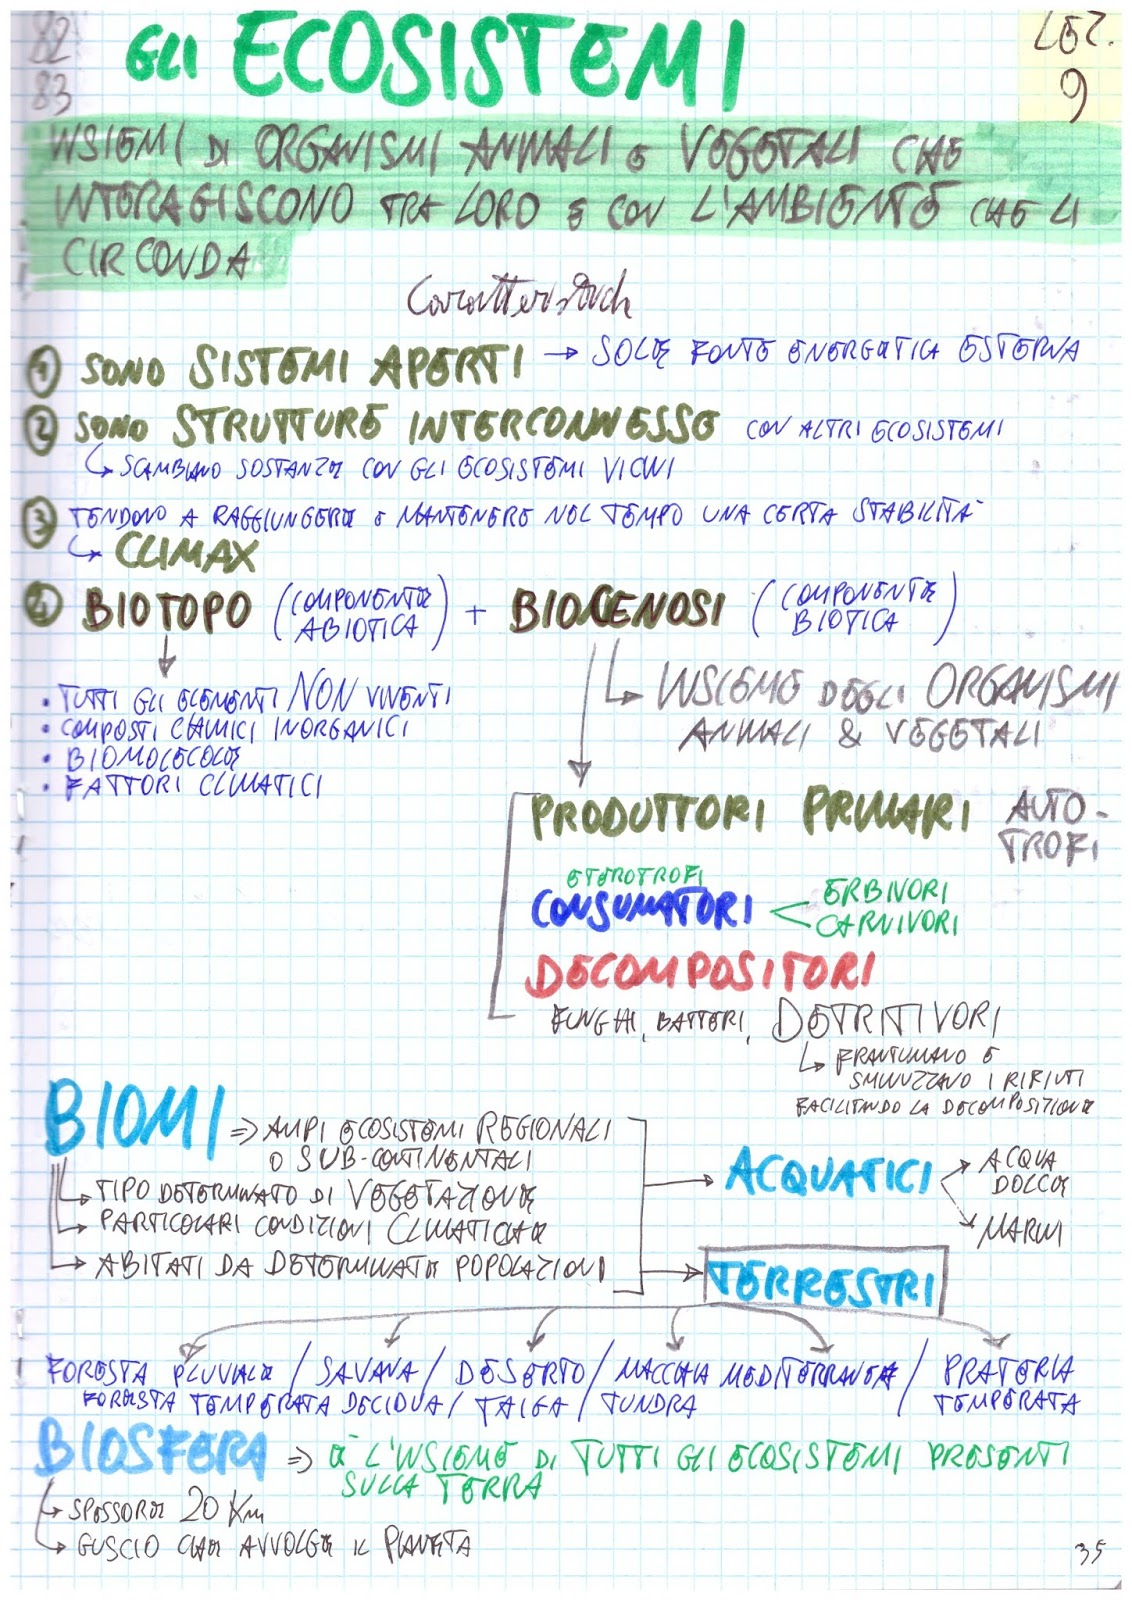 82
83
GLI ECOSISTEMI
LEZ.
9
INSIEMI DI ORGANISMI ANIMALI E VEGETALI CHE
INTERAGISCONO TRA LORO E CON L'AMBIENTE CHE LI
CIRCONDA
Caratteristich
1 SONO SISTEMI APERTI → SOLE FONTE ENERGETICA ESTERNA
2 SONO STRUTTURE INTERCONNESSE CON ALTRI ECOSISTEMI
↳ SCAMBIANO SOSTANZE CON GLI ECOSISTEMI VICINI
3 TENDONO A RAGGIUNGERE E MANTENERE NEL TEMPO UNA CERTA STABILITÀ
↳ CLIMAX
4 BIOTOPO (COMPONENTE ABIOTICA) + BIOCENOSI (COMPONENTE BIOTICA)
• TUTTI GLI ELEMENTI NON VIVENTI
• COMPOSTI CHIMICI INORGANICI
• BIOMOLECOLE
• FATTORI CLIMATICI
↳ INSIEME DEGLI ORGANISMI
ANIMALI & VEGETALI
PRODUTTORI PRIMARI AUTO-
TROFI
ETEROTROFI
CONSUMATORI < ERBIVORI
CARNIVORI
DECOMPOSITORI
FUNGHI, BATTERI, DETRITIVORI
↳ FRANTUMANO E
SMINUZZANO I RIFIUTI
FACILITANDO LA DECOMPOSIZIONE
BIOMI ⇒ AMPI ECOSISTEMI REGIONALI
O SUB-CONTINENTALI
↳ TIPO DETERMINATO DI VEGETAZIONE
→ PARTICOLARI CONDIZIONI CLIMATICHE
→ ABITATI DA DETERMINATE POPOLAZIONI
ACQUATICI → ACQUA
DOLCE
MARINI
TERRESTRI
FORESTA PLUVIALE / SAVANA / DESERTO / MACCHIA MEDITERRANEA / PRATERIA
FORESTA TEMPERATA DECIDUA / TAIGA / TUNDRA TEMPERATA
BIOSFERA ⇒ È L'INSIEME DI TUTTI GLI ECOSISTEMI PRESENTI
SULLA TERRA
→ SPESSORE 20 Km
→ GUSCIO CHE AVVOLGE IL PIANETA
35